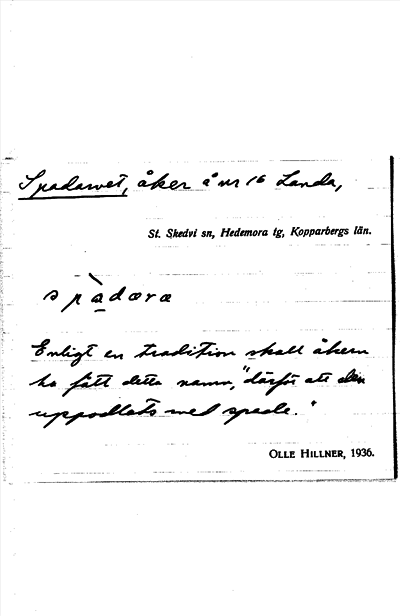 Spadarvet, åker å nr 16 Landa,
St. Skedvi sn, Hedemora tg, Kopparbergs län.
spàdæræ
Enligt en tradition skall åkern
ha fått detta namn, "därför att den
uppodlats med spade."
OLLE HILLNER, 1936.